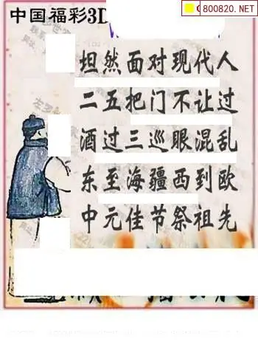 800820.NET
中国福彩3D
坦然面对现代人
二五把门不让过
酒过三巡眼混乱
东至海疆西到欧
中元佳节祭祖先